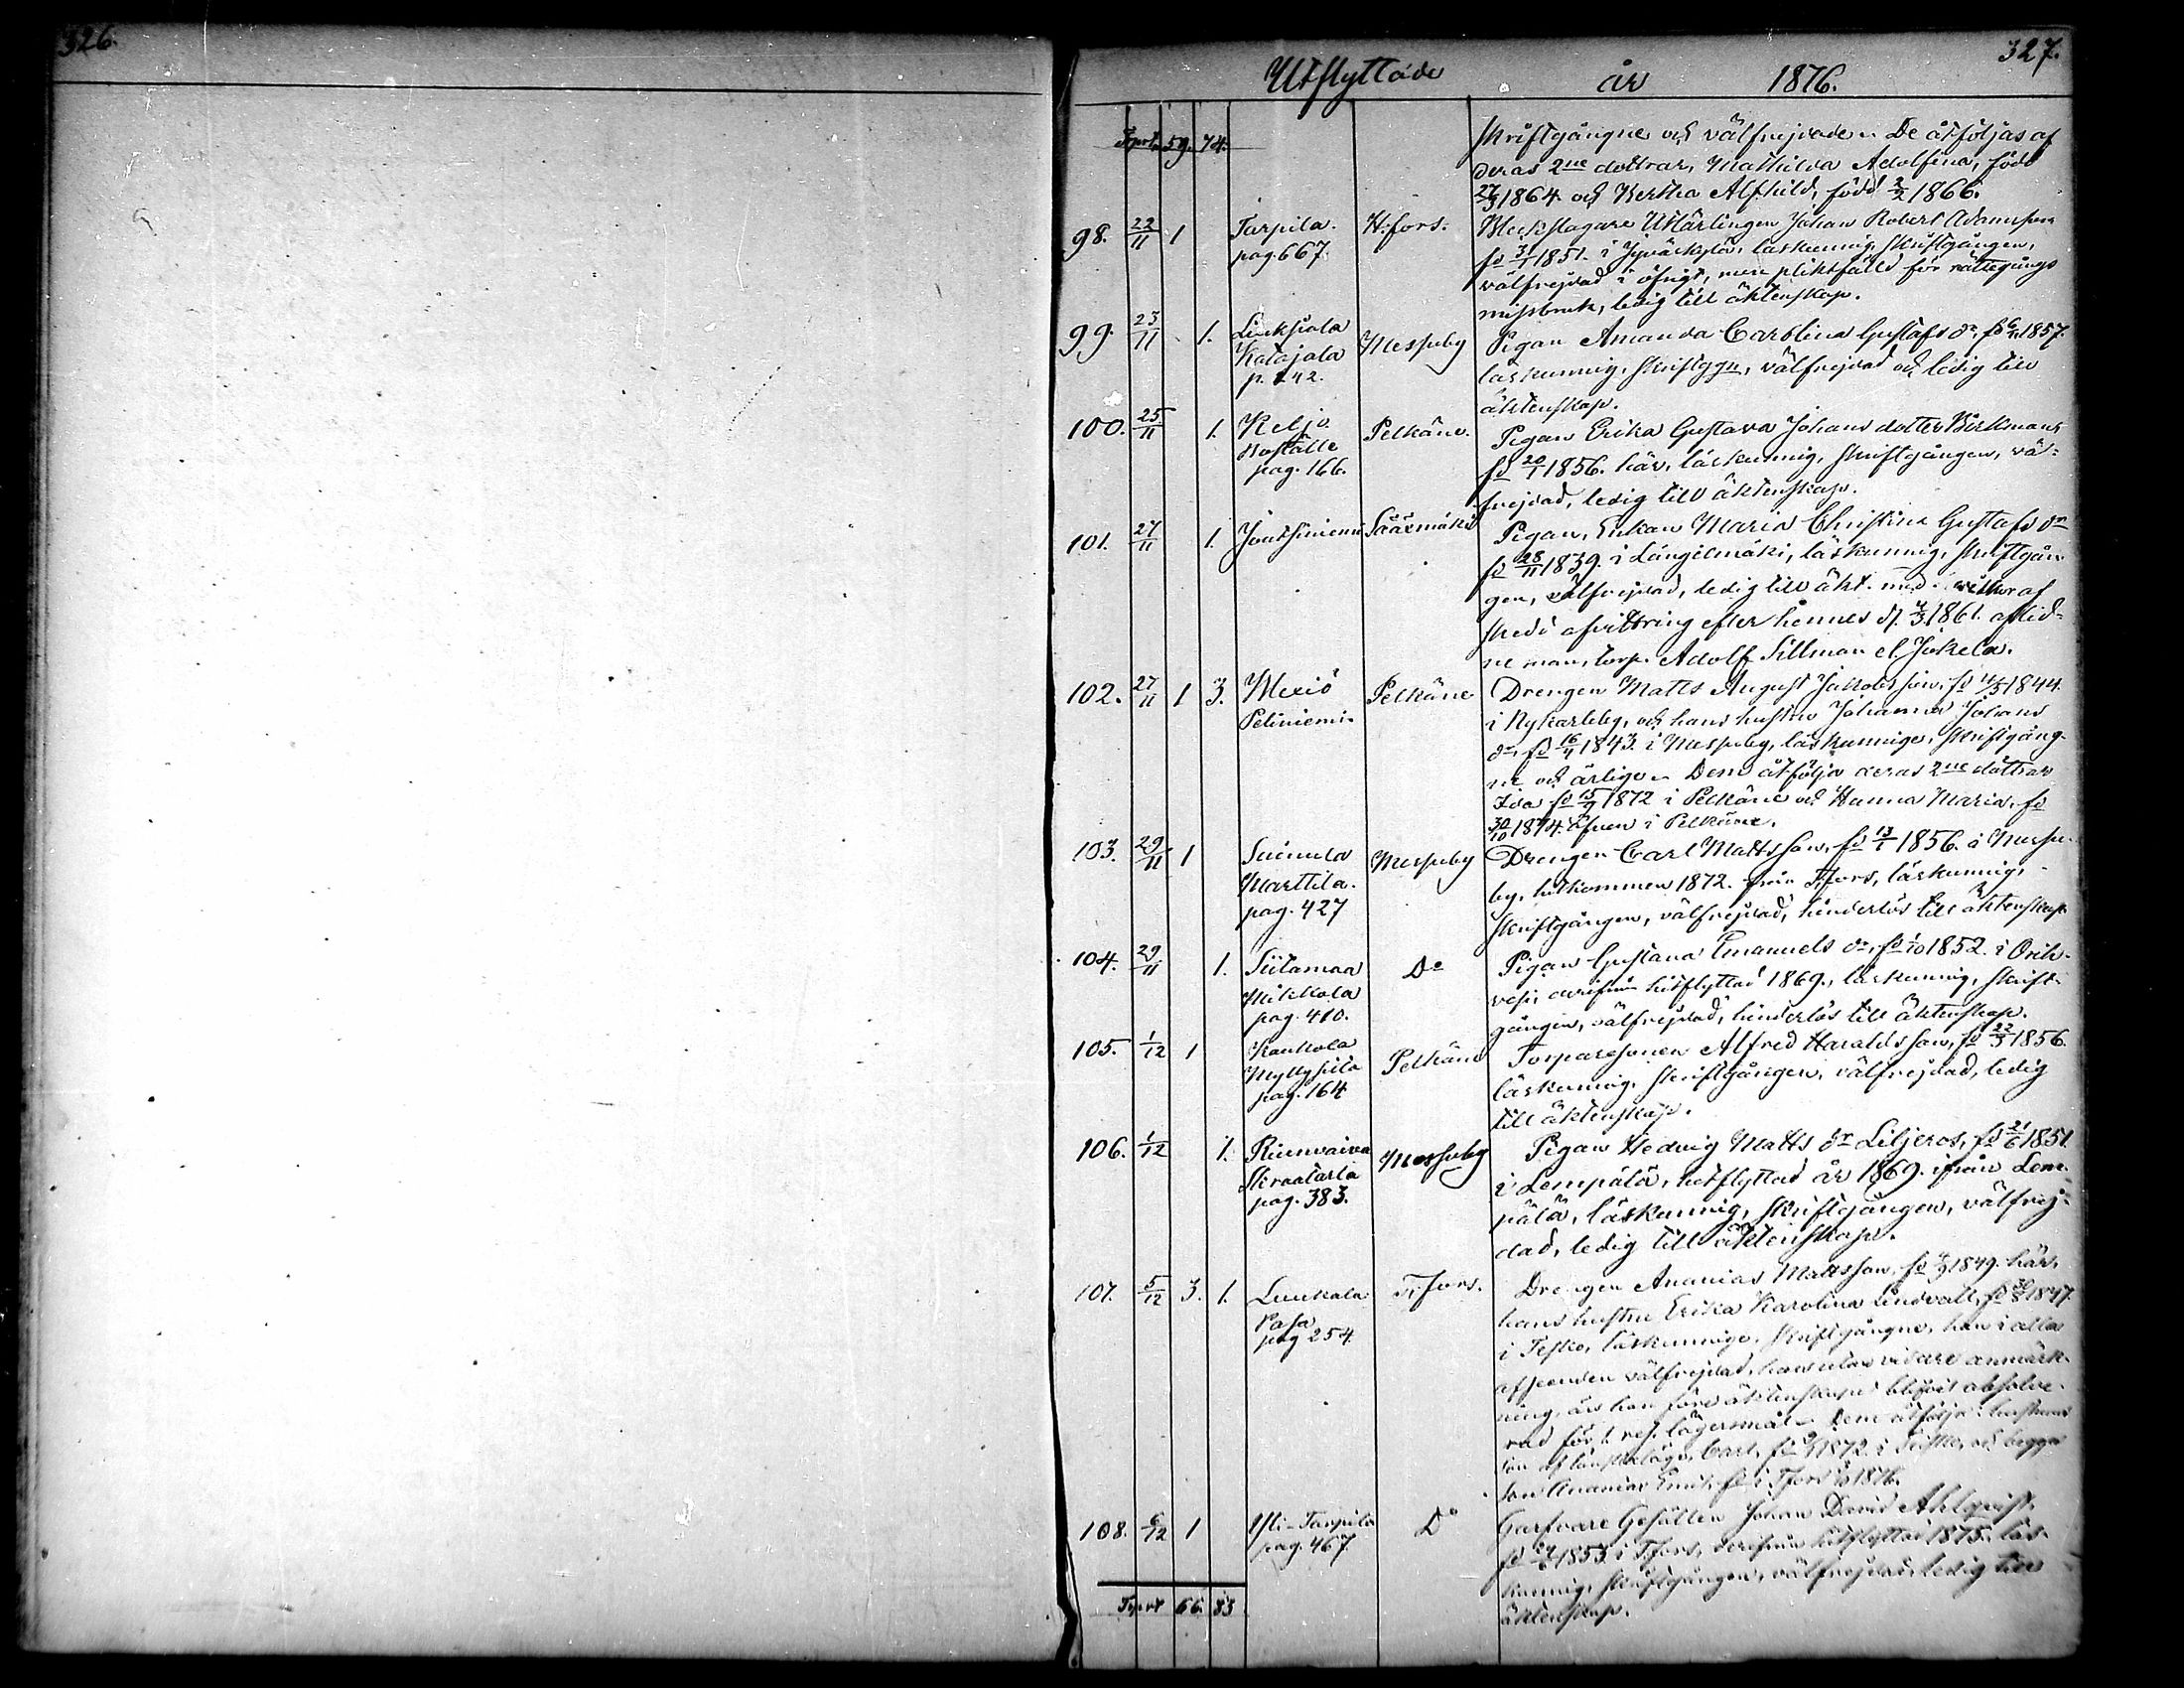 326.
327.
Utflyttade år 1876.
Tsprt. 59. 74.
skriftgångne och välfrejdade. De åtföljas af
deras 2ne döttrar, Mathilda Adolfina, född
27/3 1864 och Bertha Alfhild, född 2/2 1866.
98. 22/11 1 Tarpila. pag. 667. H:fors. Bleckslagare Utlärlingen Johan Robert Adamsson
fd 31/1 1851. i Jyväskylä, läskunnig, skriftgången,
välfrejdad i öfrigt, men pliktfälld för rättegångs
missbruk, ledig till äktenskap.
99. 23/11 1. Liuksiala Katajala p. 242. Messuby Pigan Amanda Carolina Gustafs dr, fd 1857.
läskunnig, skriftggn, välfrejdad och ledig till
äktenskap.
100. 25/11 1. Keljo Boställe pag. 166. Pelkäne. Pigan Erika Gustava Johans dotter Birkman,
fd 20/1 1856. här, läskunnig, skriftgången, väl-
frejdad, ledig till äktenskap.
101. 27/11 1. Joutsiniemi Sääxmäki Pigan, Enkan Maria Christina Gustafs dr
fd 28/11 1839. i Längelmäki, läskunnig, skriftgån-
gen, välfrejdad, ledig till äkt. med vilkor af
skedd afvittring efter hennes d. 4/3 1861. aflid-
ne man, torp. Adolf Sillman el. Jokela.
102. 27/11 1 3. Wexiö Peliniemi. Pelkäne Drengen Matts August Jakobsson, fd 4/5 1844.
i Nykarleby, och hans hustru Johanna Johans
dr, fd 16/4 1843. i Messuby, läskunnige, skriftgång-
ne och ärlige. Dem åtfölja deras 2ne döttrar
Ida fd 15/9 1872 i Pelkäne och Hanna Maria, fd
30/10 1874. äfven i Pelkäne.
103. 29/11 1 Suinula Marttila. pag. 427 Messuby Drengen Carl Mattsson, fd 13/1 1856. i Messu-
by, hitkommen 1872. från T:fors, läskunnig,
skriftgången, välfrejdad, hinderlös till äktenskap.
104. 29/11 1. Siitamaa Mikkola pag. 410. Do Pigan Gustava Emanuels dr, fd 1/10 1852. i Orih-
vesi, derifrån hitflyttad 1869., läskunnig, skrift-
gången, välfrejdad, hinderlös till äktenskap.
105. 1/12 1 Kaukola Myllysilä pag. 164 Pelkäne Torparesonen Alfred Haraldsson, fd 22/3 1856.
läskunnig, skriftgången, välfrejdad, ledig
till äktenskap.
106. 1/12 1. pag. 383. Messuby Pigan Hedvig Matts dr Liljeros, fd 21/6 1851.
i Lempälä, hitflyttad år 1869. ifrån Lem-
pälä, läskunnig, skriftgången, välfrej-
dad, ledig till äktenskap.
107. 5/12 3. 1. Luukala Pasa pag 254 T:fors. Drengen Ananias Mattsson, fd 1849. här,
hans hustru Erika Karolina Lindvall, fd 1847.
i Teisko, läskunnige, skriftgångne, han i alla
afseenden välfrejdad, hon utan vidare anmärk-
ning, än hon före äktenskapet blifvit absolve-
rad för 1. res. lägersmål. Dem åtfölja: hustruns
son Carl, fd 1872. i Teisko, och begges
son Ananias Emil, fd i T:fors 1876.
108. 6/12 1 Yli-Tarpila pag. 467. Do Garfvare Gesällen Johan David Ahlqvist,
fd 1853. i T:fors, derifrån hitflyttad 1875. läs-
kunnig, skriftgången, välfrejdad, ledig till
äktenskap.
Tsprt 66. 83